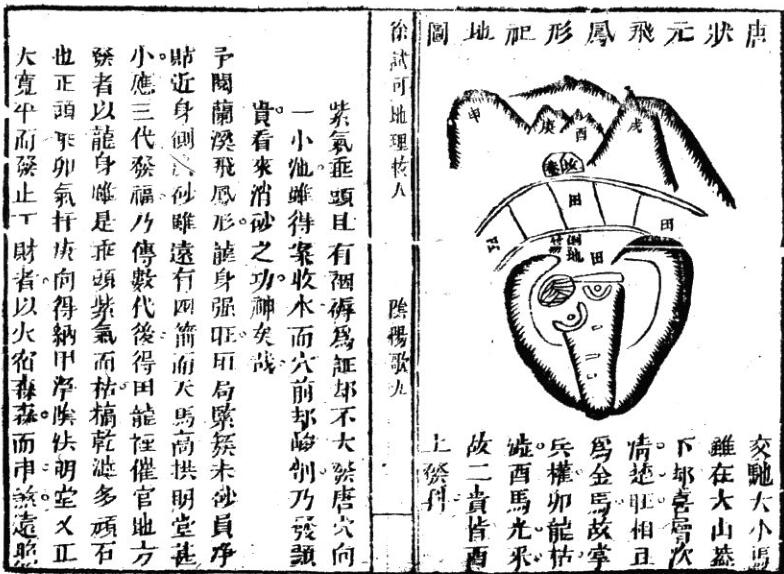 唐狀元飛鳳形祀地圖
申
庚
酉
戌
案
田
田
田
交馳大小馬
雖在大山蓋
下却喜層次
情逆旺相五
為金馬故掌
兵權卯龍枯
酉馬光釆
故二貴皆酉
上發科
徐試可地理核人
陰陽歌九
紫氣垂頭且有裀褥為証却不大發唐穴向
一小池雖得案收水而穴前却峻削乃發顯
貴看來消砂之功神矣哉
予閱蘭溪飛鳳形龍身强旺局緊癸未砂員净
貼近身側砂雖遠有四箭而天馬高拱明堂甚
小應三代發福乃傳數代後得田龍催官地方
發者以龍身雖是垂頭紫氣而枯槁乾燥多頑石
也正頭聚卯氣扦庚向得納甲淨陰明堂又正
大寬平而發止丁財者以火宿森森而申煞遠照